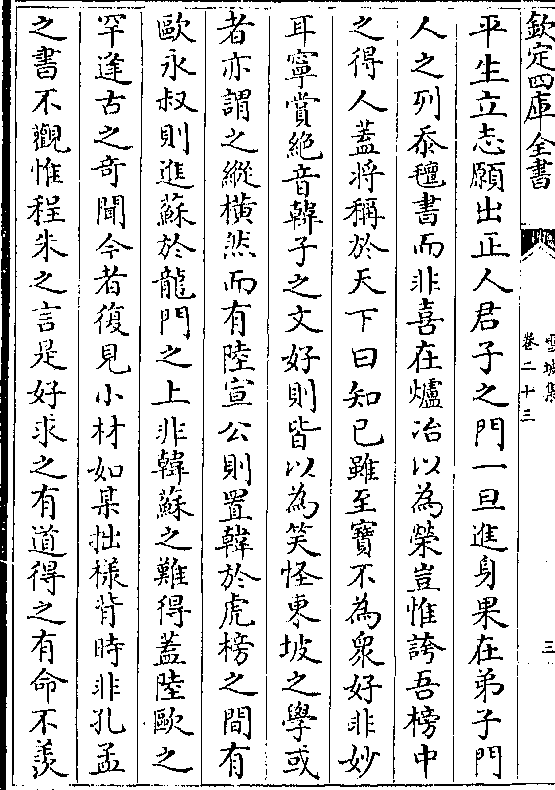 欽定四庫全書
雪坡集
卷二十三
三
平生立志願出正人君子之門一旦進身果在弟子門
人之列忝氊書而非喜在爐冶以為榮豈惟誇吾榜中
之得人蓋將稱於天下曰知已雖至寶不為衆好非妙
耳寧賞絶音韓子之文好則皆以為笑怪東坡之學或
者亦謂之縱横然而有陸宣公則置韓於虎榜之間有
歐永叔則進蘇於龍門之上非韓蘇之難得蓋陸歐之
罕逢古之奇聞今者復見小材如某拙樣背時非孔孟
之書不觀惟程朱之言是好求之有道得之有命不羨